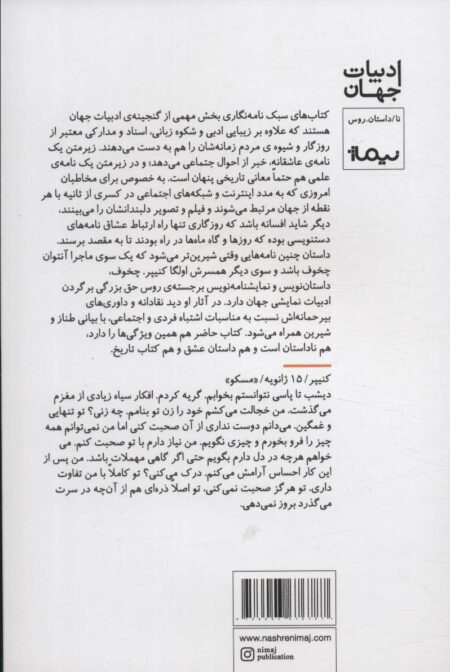 ادبیات
جهان
نا/داستان.روس
نیماژ
کتاب‌های سبک نامه‌نگاری بخش مهمی از گنجینه‌ی ادبیات جهان
هستند که علاوه بر زیبایی ادبی و شکوه زبانی، اسناد و مدارکی معتبر از
روزگار و شیوه ی مردم زمانه‌شان را هم به دست می‌دهند. زیرمتن یک
نامه‌ی عاشقانه، خبر از احوال جتماعی می‌دهد؛ و در زیرمتن یک نامه‌ی
علمی هم حتماً معانی تاریخی پنهان است. به خصوص برای مخاطبان
امروزی که به مدد اینترنت و شبکه‌های اجتماعی در کسری از ثانیه با هر
نقطه از جهان مرتبط می‌شوند و فیلم و تصویر دلبندانشان را می‌بینند،
دیگر شاید افسانه باشد که روزگاری تنها راه ارتباط عشاق نامه‌های
دستنویسی بوده که روزها و گاه ماه‌ها در راه بودند تا به مقصد برسند.
داستان چنین نامه‌هایی وقتی شیرین‌تر می‌شود که یک سوی ماجرا آنتوان
چخوف باشد و سوی دیگر همسرش اولگا کنیپر. چخوف،
داستان‌نویس و نمایشنامه‌نویس برجسته‌ی روس حق بزرگی بر گردن
ادبیات نمایشی جهان دارد. در آثار او دید نقادانه و داوری‌های
بیرحمانه‌اش نسبت به مناسبات اشتباه فردی و اجتماعی، با بیانی طناز و
شیرین همراه می‌شود. کتاب حاضر هم همین ویژگی‌ها را دارد،
هم ناداستان است و هم داستان عشق و هم کتاب تاریخ.
کنیپر/ ۱۵ ژانویه/«مسکو»
دیشب تا پاسی نتوانستم بخوابم. گریه کردم. افکار سیاه زیادی از مغزم
می‌گذشت. من خجالت می‌کشم خود را زن تو بنامم. چه زنی؟ تو تنهایی
و غمگین. می‌دانم دوست نداری از آن صحبت کنی اما من نمی‌توانم همه
چیز را فرو بخورم و چیزی نگویم. من نیاز دارم با تو صحبت کنم. می
خواهم هرچه در دل دارم بگویم حتی اگر گاهی مهملات باشد. من پس از
این کار احساس آرامش می‌کنم. درک می‌کنی؟ تو کاملاً با من تفاوت
داری. تو هرگز صحبت نمی‌کنی، تو اصلاً ذره‌ای هم از آن‌چه در سرت
می‌گذرد بروز نمی‌دهی.
www.nashrenimaj.com
nimaj
publication